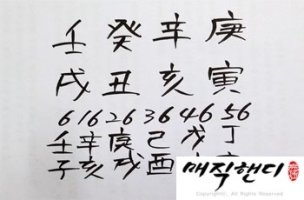 壬 癸 辛 庚
戌 丑 亥 寅
6 16 26 36 46 56
壬 辛 庚 己 戊 丁
子 亥 戌 酉
매직핸디
Copyright(c). All Rights Reserved